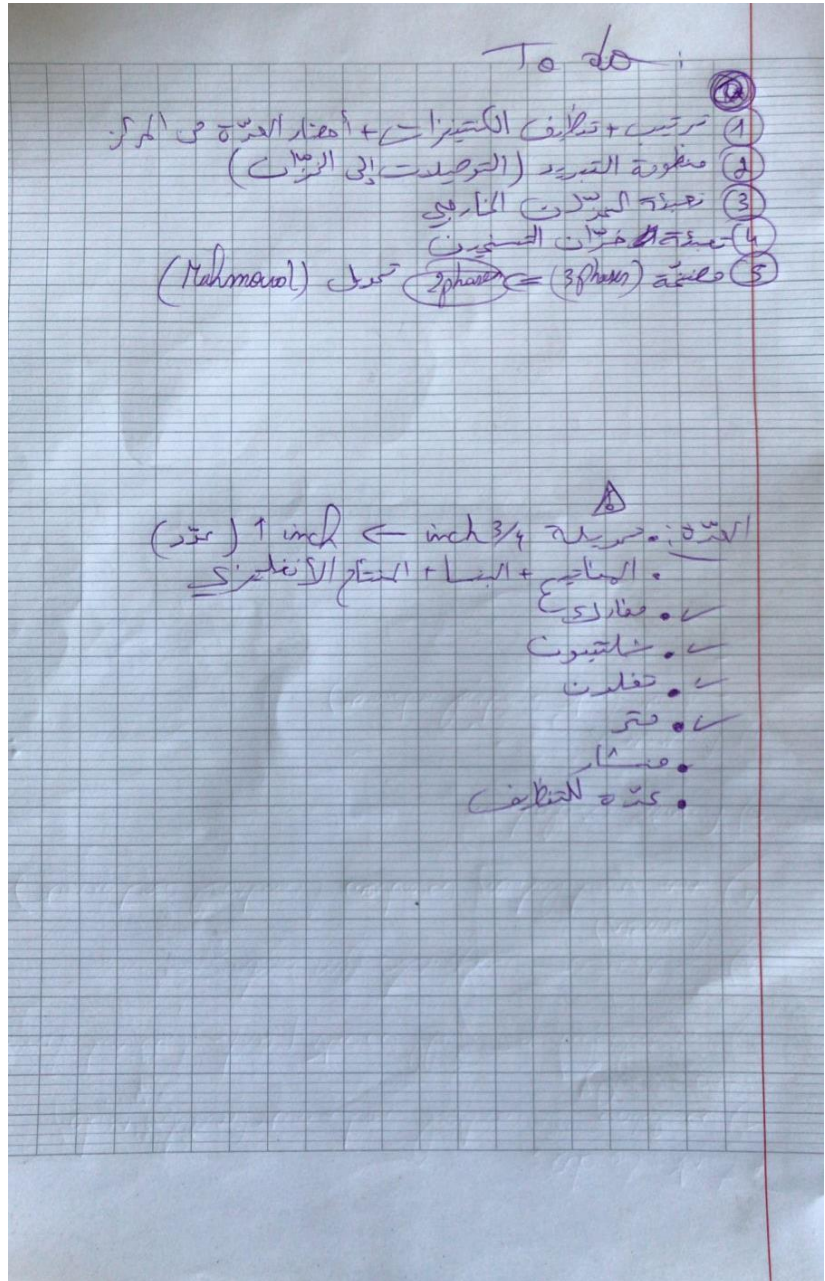 To do :
① ترتيب + تنظيف الكنتينرات + أحضار العدّة من المركز
② منظومة التبريد (التوصيلات إلى الخزّان)
③ تعبئة الخزّان الخارجي
④ تعبئة خزّان التسخين
⑤ مضخّة (3 phases) => 2 phases تحويل (Mahmoud)
العدّة: • inch 3/4 ← 1 inch (عدد)
• المفاتيح + البنسا + المفتاح الأنغليزي
✓ •
✓ •
✓ • تفلون
✓ • متر
• منشار
• عدّة للتنظيف